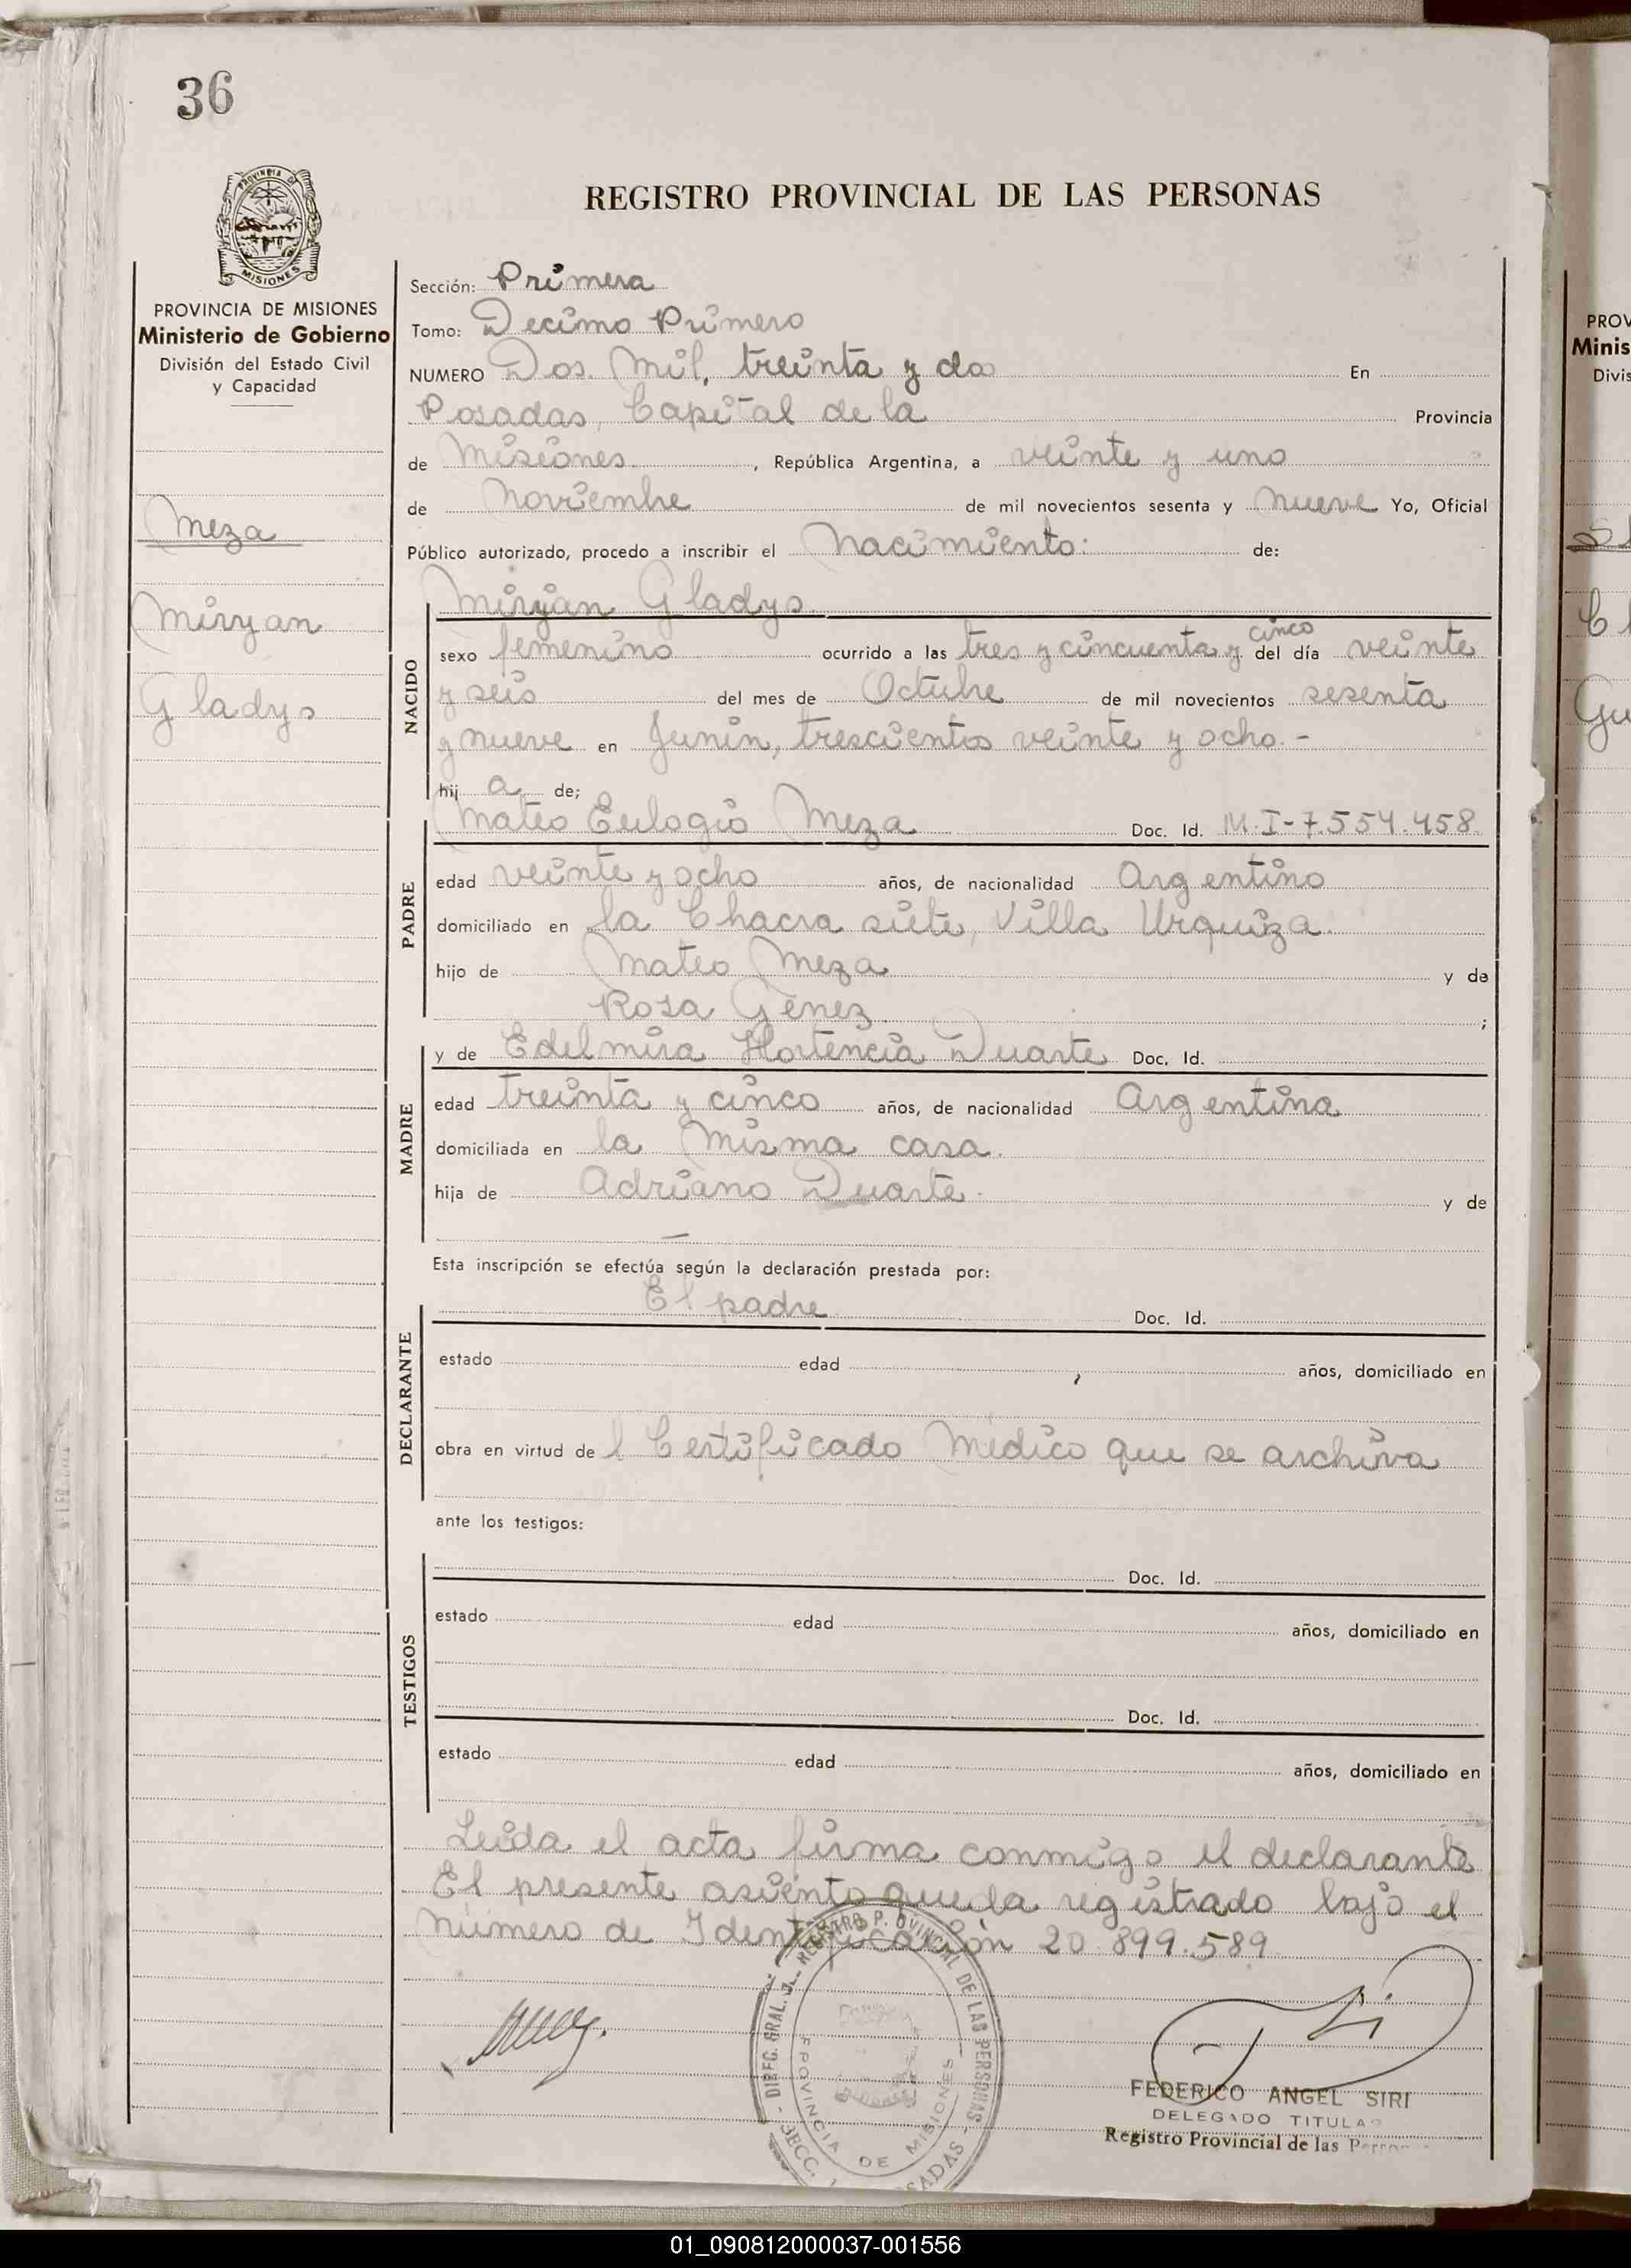 36
PROVINCIA DE
MISIONES
PROVINCIA DE MISIONES
Ministerio de Gobierno
División del Estado Civil
y Capacidad
Meza
Miryan
Gladys
REGISTRO PROVINCIAL DE LAS PERSONAS
Sección: Primera
Tomo: Decimo Primero
NUMERO Dos Mil, treinta y dos En
Posadas, Capital de la Provincia
de Misiones, República Argentina, a veinte y uno
de Noviembre de mil novecientos sesenta y nueve Yo, Oficial
Público autorizado, procedo a inscribir el Nacimiento: de:
Miryan Gladys
NACIDO
sexo femenino ocurrido a las tres y cincuenta y cinco del día veinte
y seis del mes de Octubre de mil novecientos sesenta
y nueve en Junin, trescientos veinte y ocho.-
hij a de;
PADRE
Mateo Eulogio Meza Doc. Id. M.I-7.554.458
edad veinte y ocho años, de nacionalidad Argentino
domiciliado en la Chacra siete, Villa Urquiza.
hijo de Mateo Meza y de
Rosa Génez ;
MADRE
y de Edelmira Hortencia Duarte Doc. Id.
edad treinta y cinco años, de nacionalidad Argentina
domiciliada en la misma casa.
hija de Adriano Duarte. y de
—
Esta inscripción se efectúa según la declaración prestada por:
DECLARANTE
El padre Doc. Id.
estado edad años, domiciliado en
obra en virtud de l Certificado Médico que se archiva
ante los testigos:
TESTIGOS
Doc. Id.
estado edad años, domiciliado en
Doc. Id.
estado edad años, domiciliado en
Leida el acta firma conmigo el declarante
El presente asiento queda registrado bajo el
Número de Identificación 20.899.589
DIREC. GRAL. REGISTRO PROVINCIAL DE LAS PERSONAS
PROVINCIA DE MISIONES
SECC.
FEDERICO ANGEL SIRI
DELEGADO TITULAR
Registro Provincial de las Personas
PROV
Minis
Divis
01_090812000037-001556